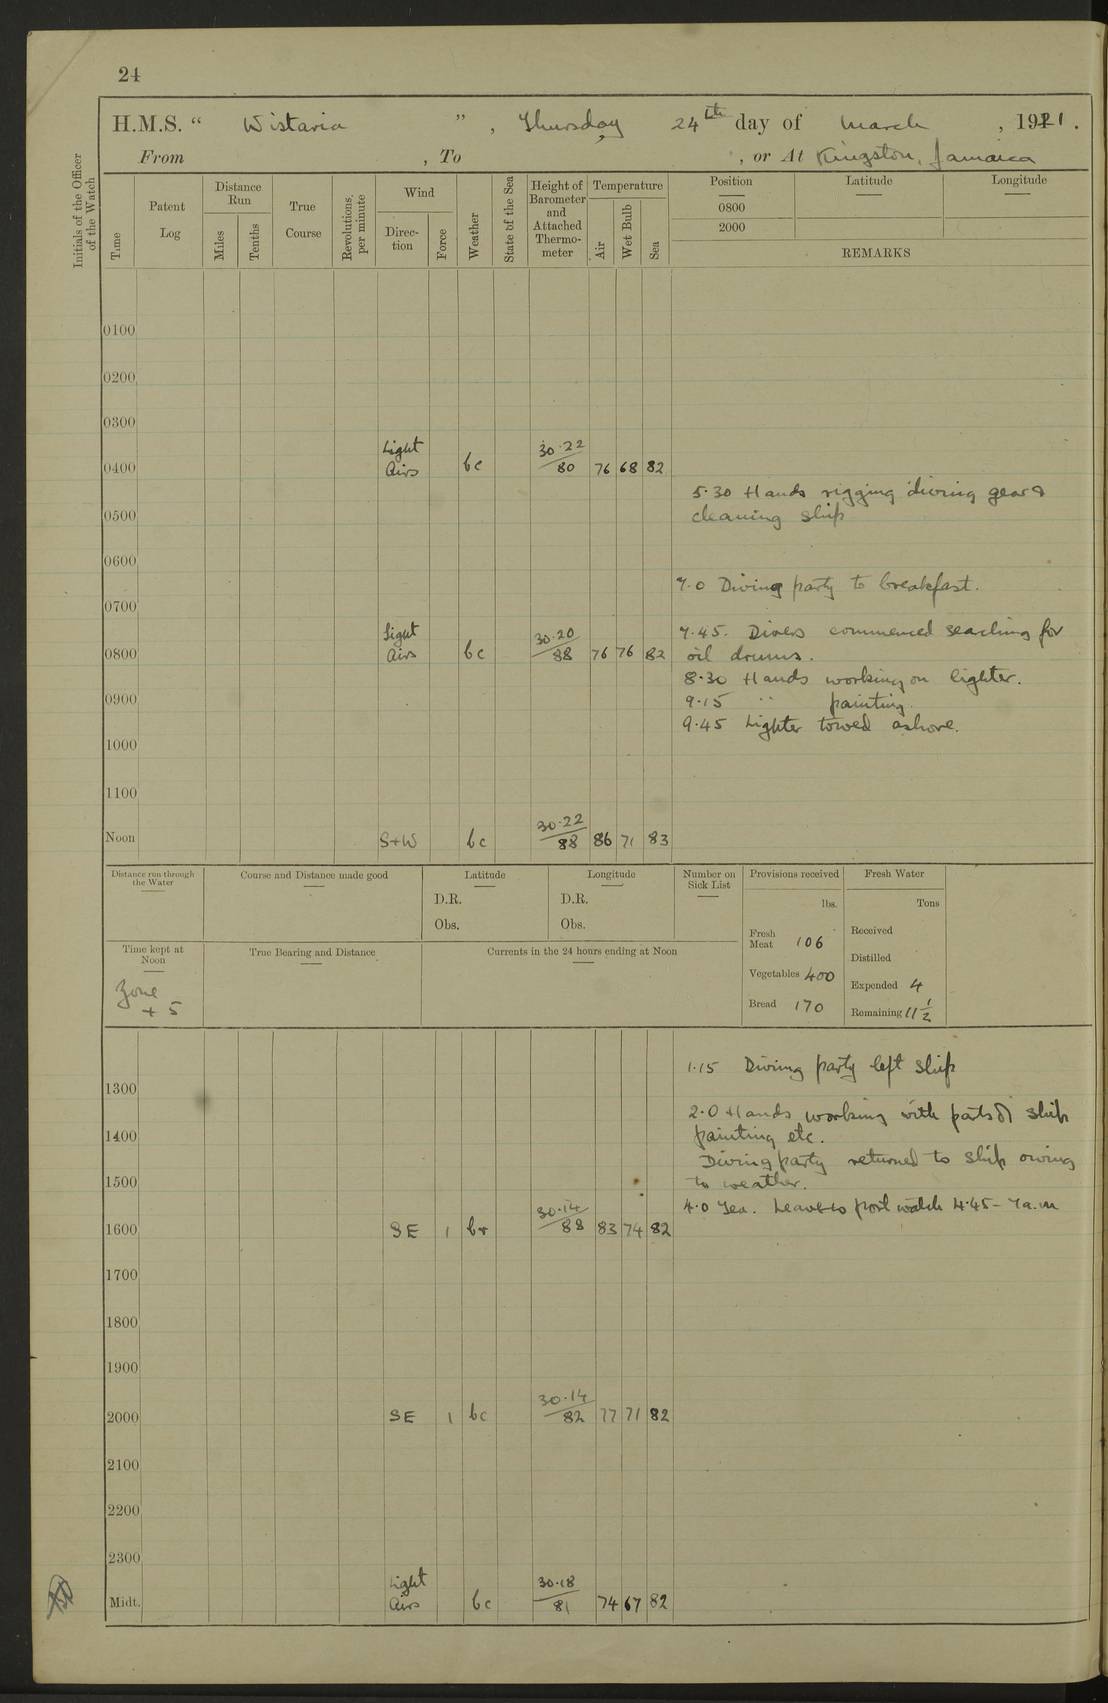 24
H.M.S. " Wistaria ", Thursday 24th day of March, 1921.
From , To , or At Kingston, Jamaica
Initials of the Officer of the Watch
Time
Patent Log
Distance Run
Miles
Tenths
True Course
Revolutions per minute
Wind
Direc-tion
Force
Weather
State of the Sea
Height of Barometer and Attached Thermo-meter
Temperature
Air
Wet Bulb
Sea
Position Latitude Longitude
0800
2000
REMARKS
0100
0200
0300
Light 30.22
0400 Airs bc 80 76 68 82
5.30 Hands rigging diving gear &
0500 cleaning ship
0600
7.0 Diving party to breakfast.
0700
Light 30.20 7.45. Divers commenced searching for
0800 Airs bc 88 76 76 82 oil drums.
8.30 Hands working on lighter.
0900 9.15 " painting.
9.45 Lighter towed ashore.
1000
1100
30.22
Noon S+W bc 88 86 71 83
Distance run through the Water
Course and Distance made good
Latitude
D.R.
Obs.
Longitude
D.R.
Obs.
Number on Sick List
Provisions received
lbs.
Fresh Meat 106
Vegetables 400
Bread 170
Fresh Water
Tons
Received
Distilled
Expended 4
Remaining 11 1/2
Time kept at Noon
Zone + 5
True Bearing and Distance
Currents in the 24 hours ending at Noon
1.15 Diving party left ship
1300
2.0 Hands working with parts of ship
1400 painting etc.
Diving party returned to ship owing
1500 to weather.
30.14 4.0 Tea. Leave to port watch 4.45 - 7 a.m
1600 SE 1 b+ 88 83 74 82
1700
1800
1900
30.14
2000 SE 1 bc 82 77 71 82
2100
2200
2300
Light 30.18
Midt. Airs bc 81 74 67 82